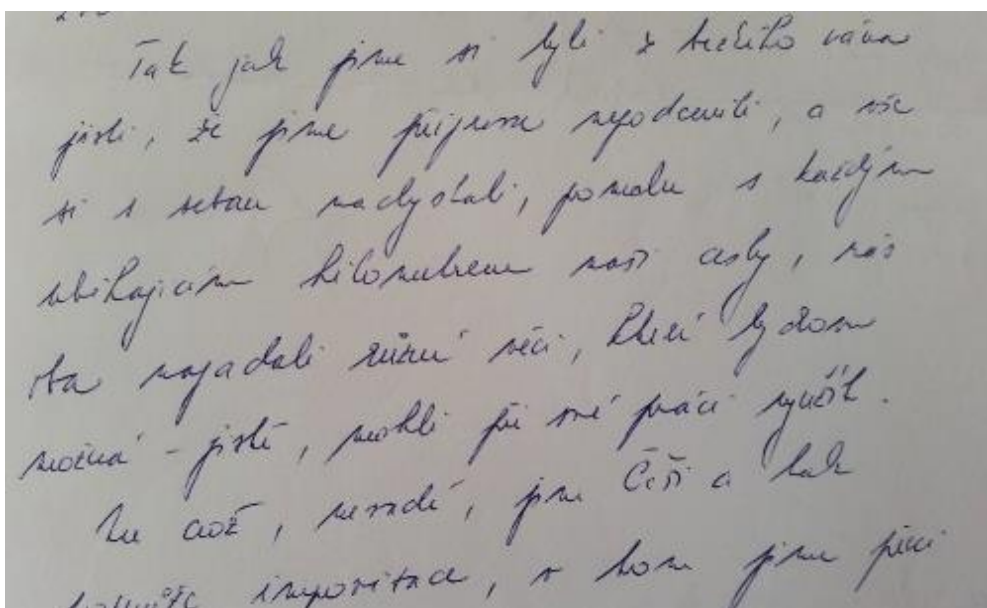 Tak jak jsme si byli z bezího rána
jisti, že jsme přípravu nepodcenili, a vše
si s sebou nadystali, pomalu s každým
ubíhajícím kilometrem naší cesty, nás
oba napadali různé věci, které bydom
možná - jistě, mohli při své práci využít.
Ale což, nevadí, jsme Češi a tak
improvizace, v tom jsme přeci